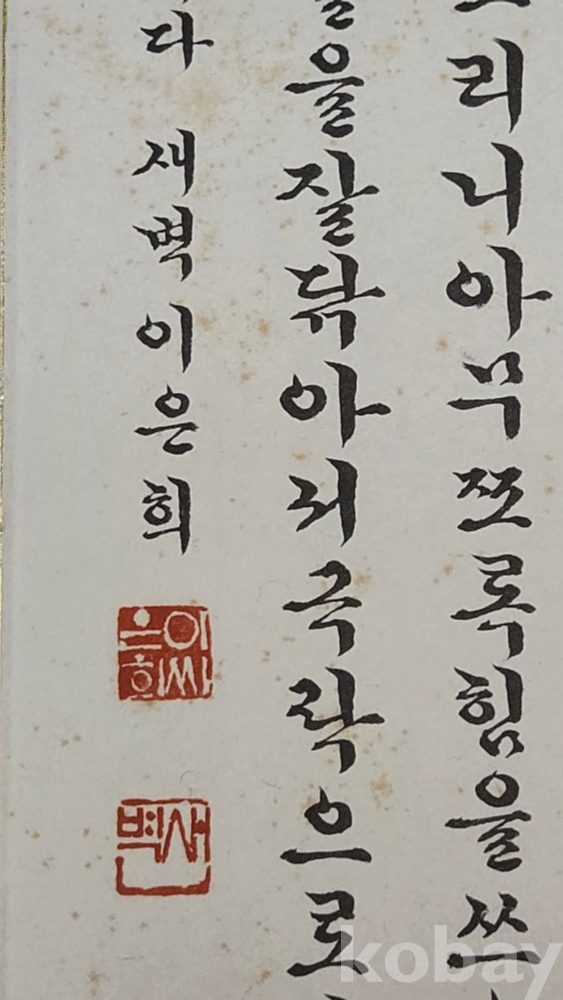 리니아무쪼록힘을쓰
을잘닦아저극락으로
다 새벽 이은희
이씨
은희
새벽
kobay